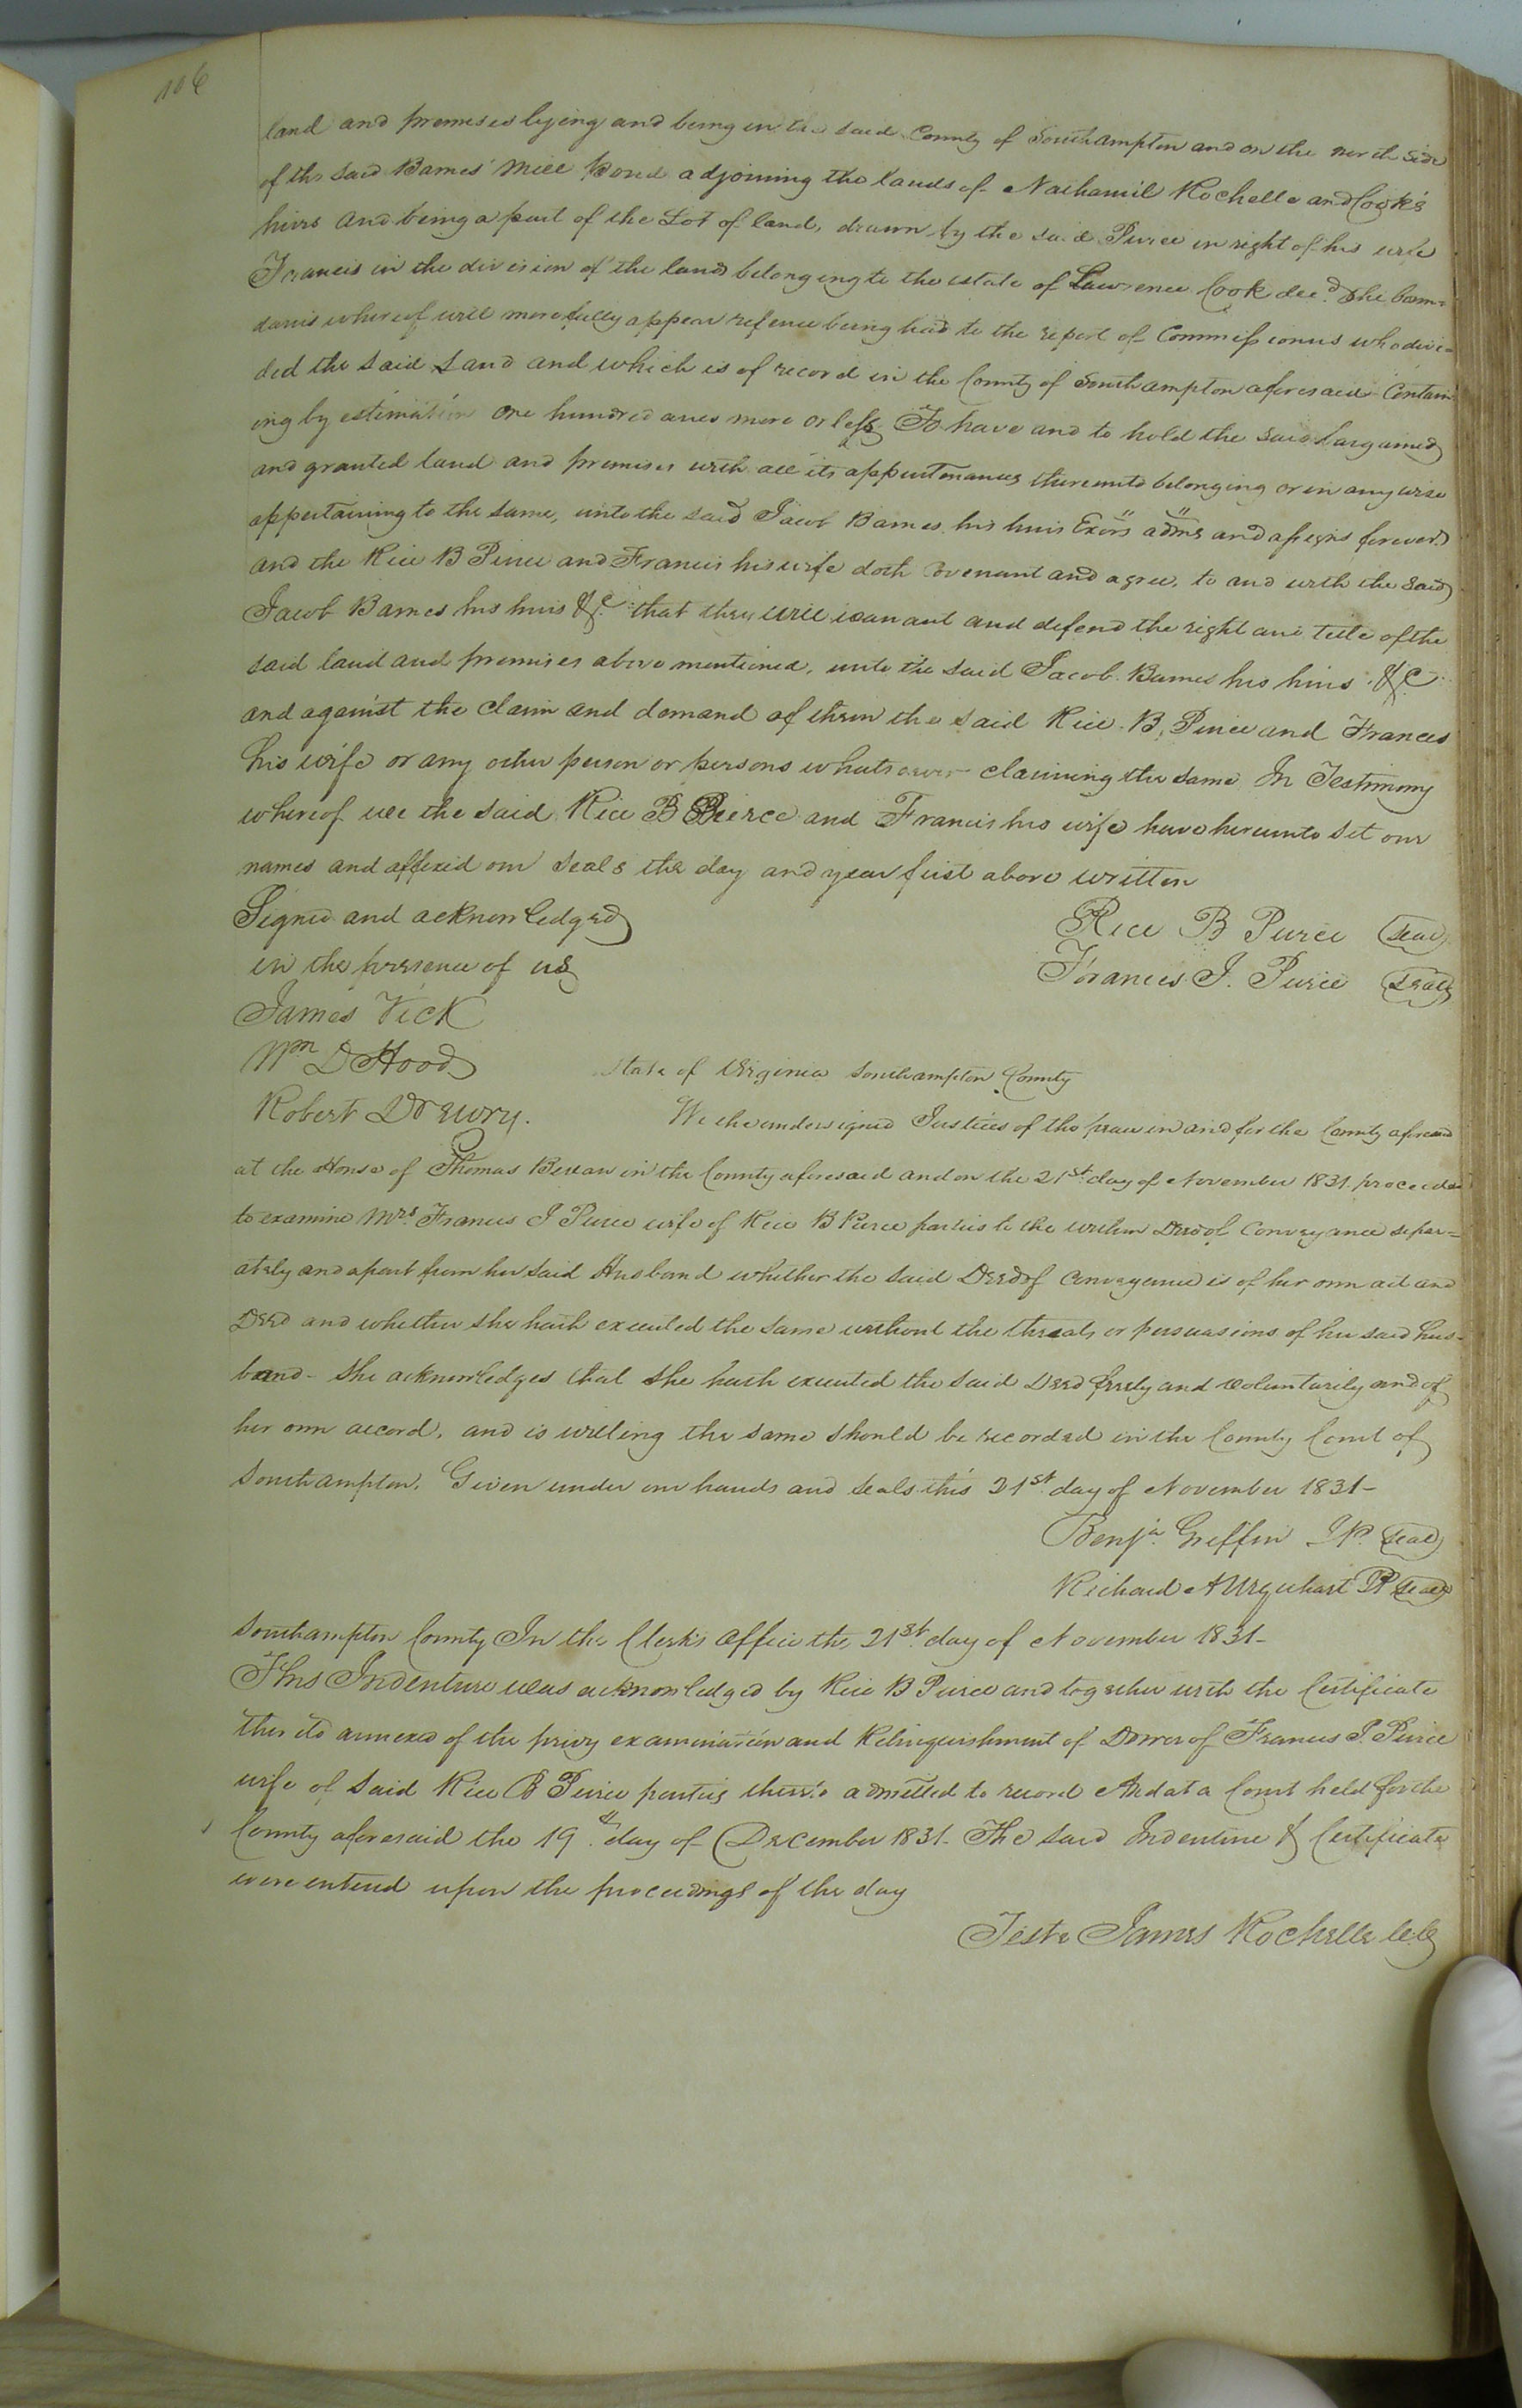 106
land and premises lying and being in the said County of Southampton and on the north side
of the said Barnes' Mill Pond adjoining the lands of Nathaniel Rochelle and Cook's
heirs and being a part of the Lot of land, drawn by the said Pierce in right of his wife
Francis in the division of the land belonging to the estate of Lawrence Cook decd. The boun=
daries whereof will more fully appear refence being had to the report of Commissioners who divi=
ded the said Land and which is of record in the County of Southampton aforesaid Contain
ing by estimation one hundred acres more or less To have and to hold the said bargained
and granted land and premises with all its appurtenances thereunto belonging or in any wise
appertaining to the same, unto the said Jacob Barnes his heirs Exors adms and assigns forever
and the Rice B Pierce and Francis his wife doth Covenant and agree, to and with the said
Jacob Barnes his heirs &c. that they will warrant and defend the right and title of the
said land and premises above mentioned, unto the said Jacob Barnes his heirs &c.
and against the claim and demand of them the said Rice B. Pierce and Frances
his wife or any other person or persons whatsoever claiming the same In Testimony
whereof we the said Rice B Pierce and Francis his wife have hereunto set our
names and affixed our seals the day and year first above written
Signed and acknowledged
in the presence of us
James Vick
Wm D Hood
Robert Drewry.
Rice B Pierce seal
Frances J. Pierce seal
State of Virginia Southampton County
We the undersigned Justices of the peace in and for the County aforesaid
at the House of Thomas in the County aforesaid and on the 21st. day of November 1831. proceeded
to examine Mrs. Frances J Pierce wife of Rice B Pierce parties to the within Deed of Conveyance separ=
ately and apart from her said Husband whether the said Deed of Conveyance is of her own act and
Deed and whether she hath executed the same without the threats or persuasions of her said hus-
band - she acknowledges that she hath executed the said Deed freely and voluntarily and of
her own accord, and is willing the same should be recorded in the County Court of
Southampton. Given under our hands and seals this 21st. day of November 1831-
Benja. Griffin JP. seal
Richard A Urquhart JP seal
Southampton County In the Clerk's Office the 21st. day of November 1831-
This Indenture was acknowledged by Rice B Pierce and together with the Certificate
thereto annexed of the privy examination and Relinquishment of Dower of Frances J. Pierce
wife of said Rice B Pierce parties thereto admitted to record And at a Court held for the
County aforesaid the 19th. day of December 1831- The said Indenture & Certificate
were entered upon the proceedings of the day
Teste James Rochelle